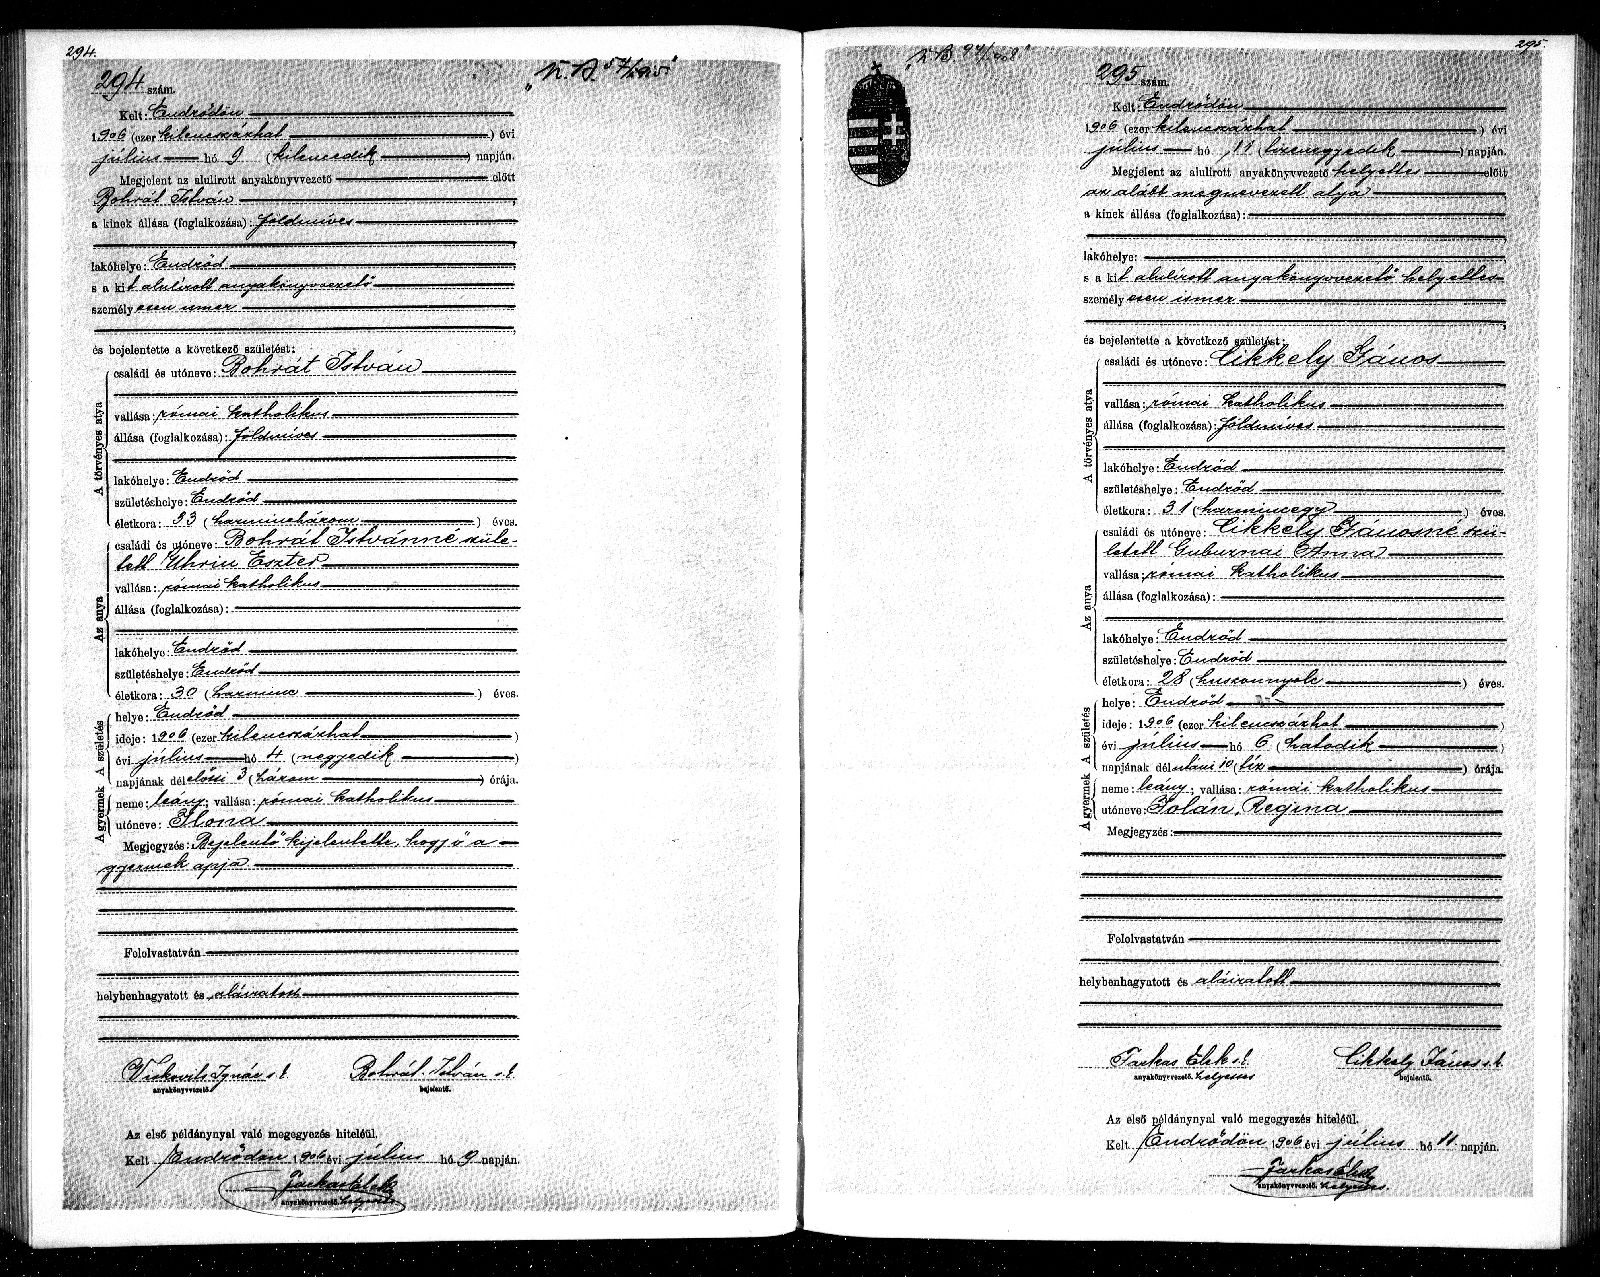 294.
294 szám.
Kelt: Endrődön
1906 (ezer kilenczszázhat ) évi
július hó 9 (kilenczedik ) napján.
Megjelent az alulirott anyakönyvvezető előtt
Bohrát István
a kinek állása (foglalkozása): földmíves
lakóhelye: Endrőd
s a kit alulírott anyakönyvvezető
személyesen ismer
és bejelentette a következő születést:
A törvényes atya
családi és utóneve: Bohrát István
vallása: római katholikus
állása (foglalkozása): földmíves
lakóhelye: Endrőd
születéshelye: Endrőd
életkora: 33 (harminchárom ) éves.
Az anya
családi és utóneve: Bohrát Istvánné szüle-
tett Uhrin Eszter
vallása: római katholikus
állása (foglalkozása):
lakóhelye: Endrőd
születéshelye: Endrőd
életkora: 30 (harmincz ) éves.
A születés
helye: Endrőd
ideje: 1906 (ezer kilenczszázhat )
évi július hó 4 (negyedik )
napjának délelőtti 3 (három ) órája.
A gyermek
neme: leány; vallása: római katholikus
utóneve: Ilona
Megjegyzés: Bejelentő kijelentette, hogy ő a
gyermek apja
Felolvastatván
helybenhagyatott és aláiratott
Viskovits Ignác s. k. Bohrát István s. k.
anyakönyvvezető. bejelentő.
Az első példánynyal való megegyezés hiteléül.
Kelt Endrődön 1906 évi július hó 9 napján.
Farkas Elek
anyakönyvvezető. helyettes
295.
295 szám.
Kelt: Endrődön
1906 (ezer kilenczszázhat ) évi
július hó 11 (tizenegyedik ) napján.
Megjelent az alulirott anyakönyvvezető helyettes előtt
az alább megnevezett atya
a kinek állása (foglalkozása):
lakóhelye:
s a kit alulírott anyakönyvvezető helyettes
személyesen ismer
és bejelentette a következő születést:
A törvényes atya
családi és utóneve: Cikkely János
vallása: római katholikus
állása (foglalkozása): földmíves
lakóhelye: Endrőd
születéshelye: Endrőd
életkora: 31 (harminczegy ) éves.
Az anya
családi és utóneve: Cikkely Jánosné szü-
letett Gubucnai Anna
vallása: római katholikus
állása (foglalkozása):
lakóhelye: Endrőd
születéshelye: Endrőd
életkora: 28 (huszonnyolc ) éves.
A születés
helye: Endrőd
ideje: 1906 (ezer kilenczszázhat )
évi július hó 6 (hatodik )
napjának délutáni 10 (tíz ) órája.
A gyermek
neme: leány; vallása: római katholikus
utóneve: Jolán, Regina
Megjegyzés:
Felolvastatván
helybenhagyatott és aláiratott
Farkas Elek s. k. Cikkely János s. k.
anyakönyvvezető. helyettes bejelentő.
Az első példánynyal való megegyezés hiteléül.
Kelt Endrődön 1906 évi július hó 11 napján.
Farkas Elek
anyakönyvvezető. helyettes.